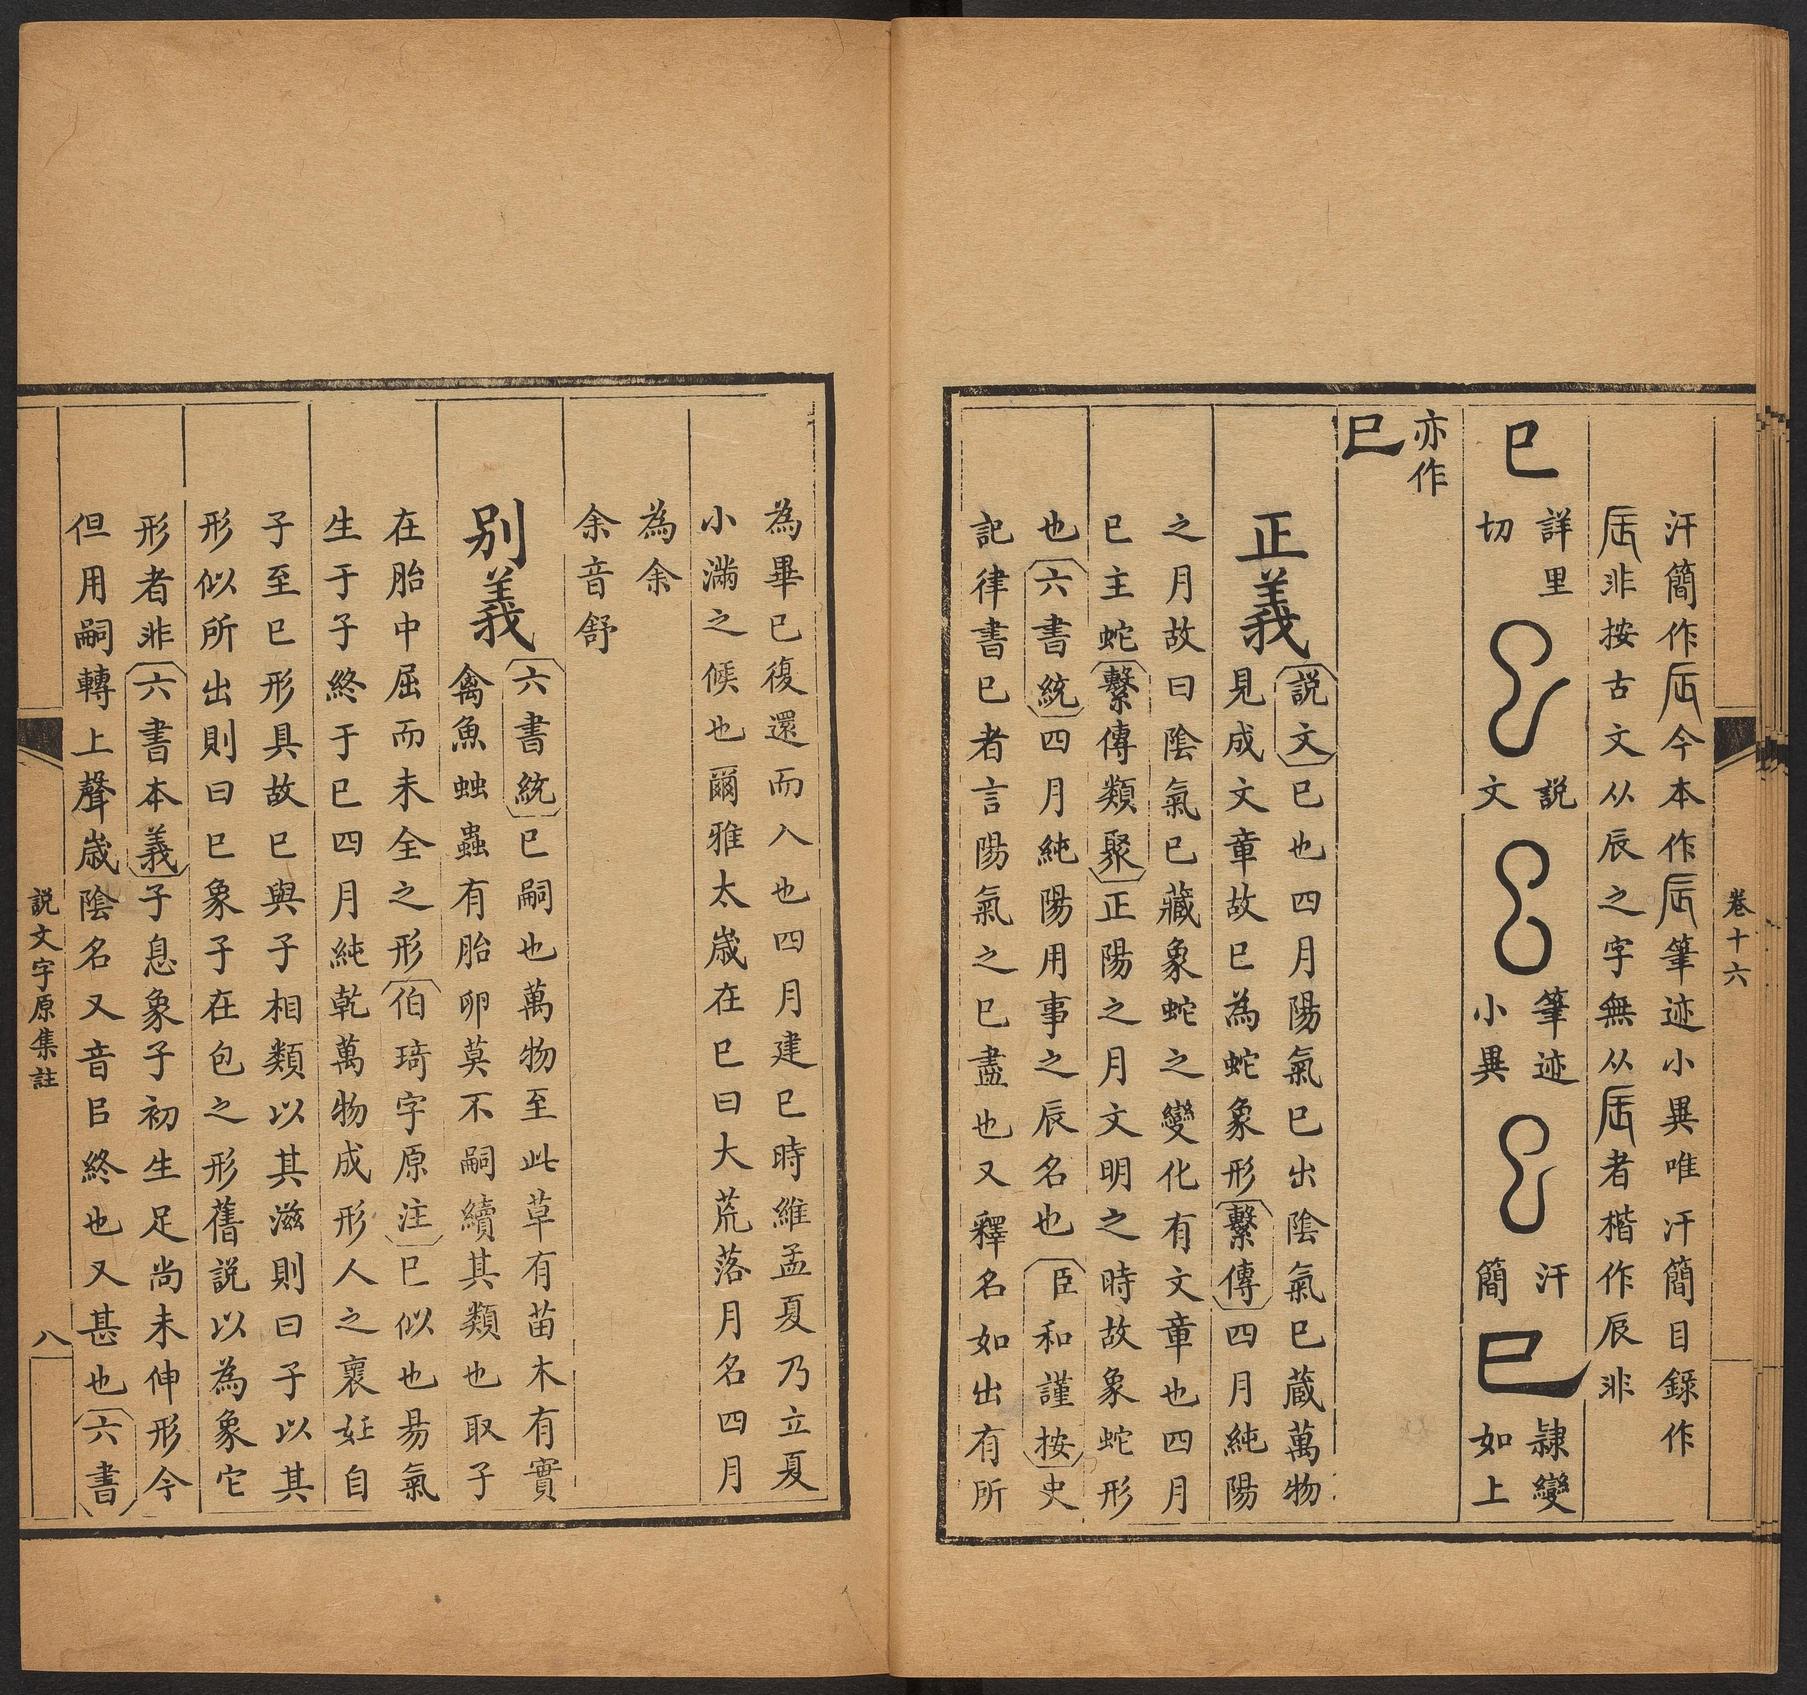 卷十六
汗簡作𨑃今本作𨑃筆迹小異唯汗簡目錄作
𨑃非按古文从辰之字無从𨑃者楷作辰非
巳
詳里
切
説
文
筆迹
小異
汗
簡
巳
隷變
如上
亦作
巳
正義
説文巳也四月陽氣巳出陰氣巳蔵萬物
見成文章故巳為蛇象形繫傳四月純陽
之月故曰陰氣巳藏象蛇之變化有文章也四月
巳主蛇繫傳類聚正陽之月文明之時故象蛇形
也六書統四月純陽用事之辰名也臣和謹按史
記律書巳者言陽氣之巳盡也又釋名如出有所
為畢巳復還而入也四月建巳時維孟夏乃立夏
小滿之候也爾雅太歳在巳曰大荒落月名四月
為余
余音舒
别義
六書統巳嗣也萬物至此草有苗木有實
禽魚蚰蟲有胎卵莫不嗣續其類也取子
在胎中屈而未全之形伯琦字原注巳似也昜氣
生于子終于巳四月純乾萬物成形人之褱妊自
子至巳形具故巳與子相類以其滋則曰子以其
形似所出則曰巳象子在包之形舊説以為象它
形者非六書本義子息象子初生足尚未伸形今
但用嗣轉上聲歳陰名又音㠯終也又甚也六書
説文字原集註
八